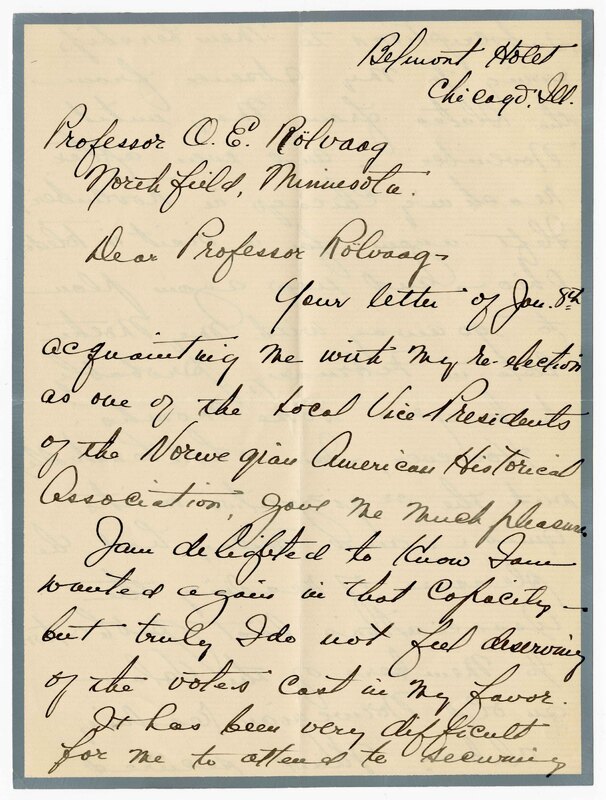 Belmont Hotel
Chicago, Ill.
Professor O. E. Rölvaag
Northfield, Minnesota.
Dear Professor Rölvaag-
Your letter of Jan. 8th
acquainting me with my re-election
as one of the Local Vice Presidents
of the Norwegian American Historical
Association, gave me much pleasure.
I am delighted to know I am
wanted again in that capacity -
but truly I do not feel deserving
of the votes cast in my favor.
It has been very difficult
for me to attend to securing